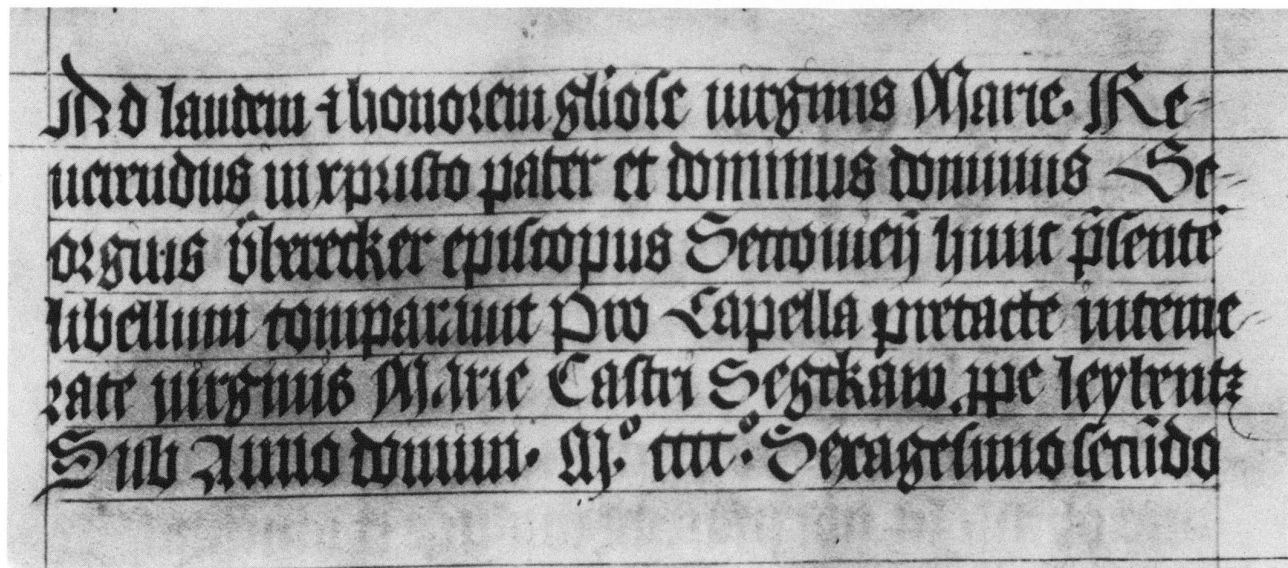 Ad laudem ⁊ honorem gliose uirginis Marie. Re-
uerendus in xpristo pater et dominus dominus Ge-
orgius v̈berecker episcopus Seccouieñ hunc p̄sentē
libellum comparauit Pro Capella pretacte inteme-
rate uirginis Marie Castri Segkaw ꝓpe leybentz
Sub Anno domini. M.º cccc.º Sexagesimo secūdo